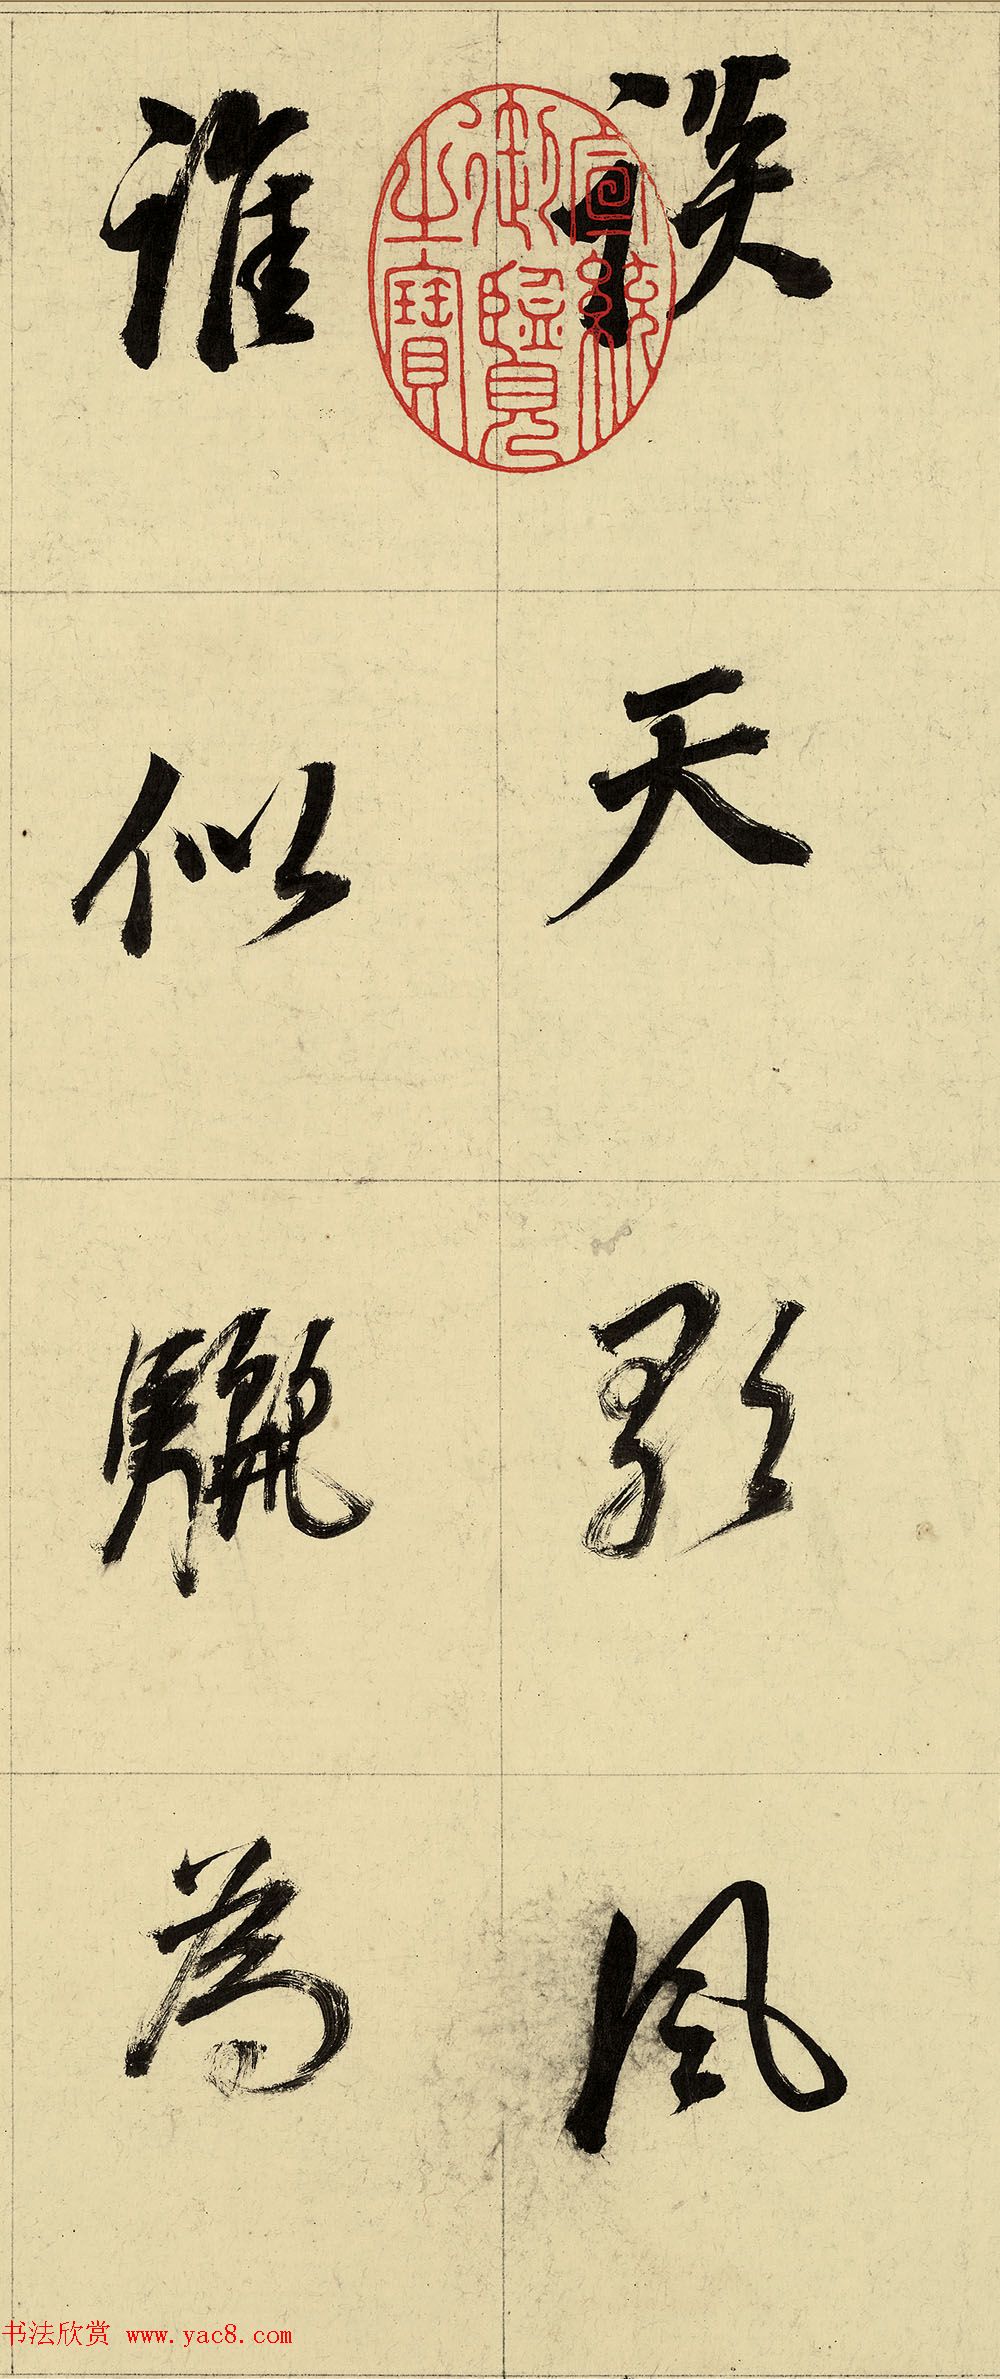 談天風
誰似驪為
宣統御覽之寶
书法欣赏 www.yac8.com